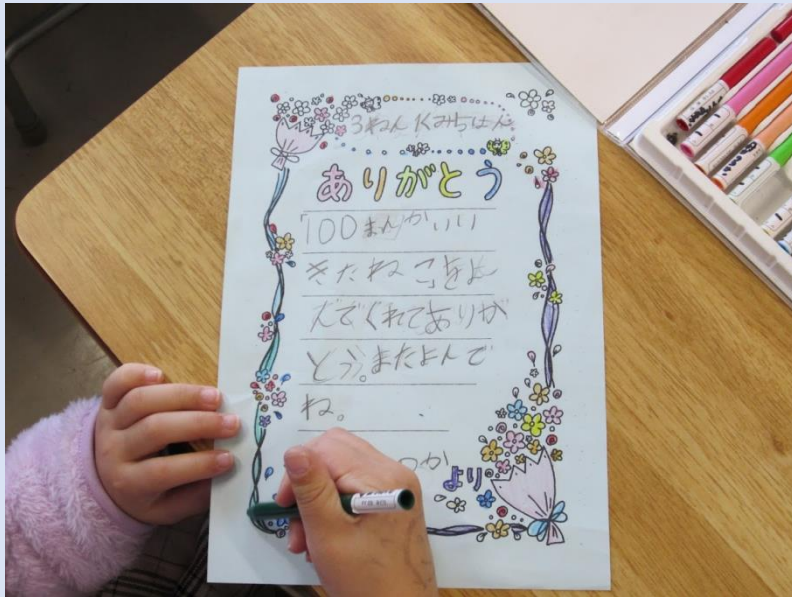 3ねん
ありがとう
「100まんかいい
きたねこ」をよ
んでくれてありが
とう。またよんで
ね。
より